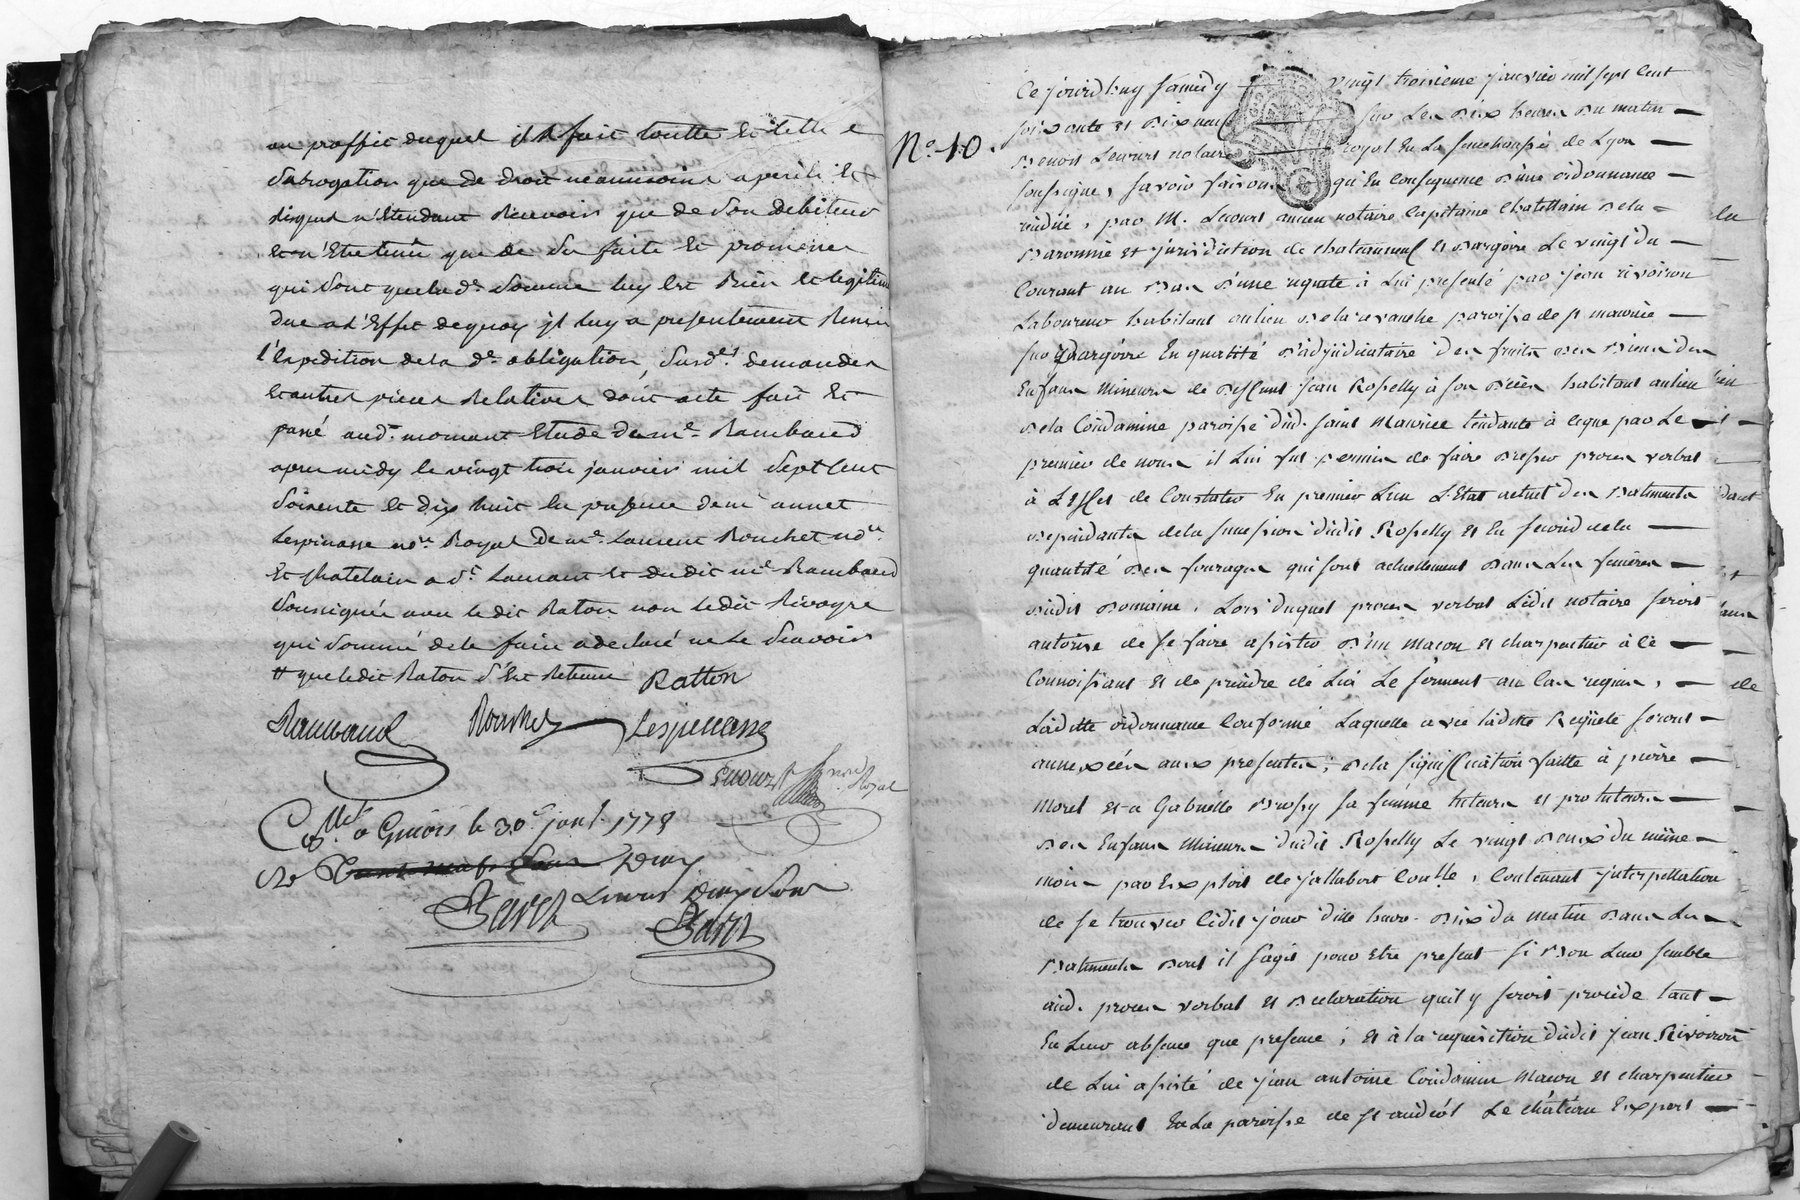 au proffit duquel il a fait toutte et telle
Subrogation que de droit neanmoins a perils et
risques n'Etendant Recevoir que de son debiteur
et n'Etre tenu que de ses faits et promesses
qui sont que lad.e Somme luy Est Bien et legitime
due a l'Effet de quoy jl luy a presentement Remis
l'Expedition de la d.e obligation, susd.es demandes
et autres pieces Relatives dont acte fait Et
passé aud. Etude de m.e Rambaud
apres midy le vingt trois janvier mil sept cent
Soixente et dix huit en presence de m.e annet
Lespinasse no.re Royal de m.e Laurent Rouchet no.re
Et Chatelain a S.t Laurent et dudit m.e Rambaud
Soussignés avec ledit Raton non ledit Rivoyre
qui sommé de le faire a declaré ne le sçavoir
# que ledit Raton s'Est Retenue Ratton
Rambaud Rouchet Lespinasse
no.re Royal
C.llé a le 30.e janv. 1778
N.o 10.
Ce jourd'huy samedy vingt troisieme janvier mil sept cent
soixante et dix neuf sur les dix heures du matin
Benoit Lecourt notaire royal En la senechaussée de Lyon
soussigné, savoir faisons qu'En consequence d'une ordonnance
rendüe, par M. Lecourt ancien notaire Capitaine Chatellain de la
Baronnie et jurisdiction de chateauneuf et dargoire Le vingt du
Courant au Bas d'une requete à Lui presenté par jean rivoiron
Laboureur habitant au lieu de la revanche paroisse de s.t maurice
sur dargoire En qualité d'adjudicataire des fruits des Biens des
Enfans Mineurs de deffunt jean Ropelly à son deces habitant au lieu
de la Condamine paroisse dud. saint Maurice tendante à ceque par Le
premier de nous il Lui fut permis de faire dresser procès verbal
à L'Effet de Constater En premier Lieu L'Etat actuel des Batiments
dependants de la succession dudit Ropelly et En second de la
quantité des fourages qui sont actuellement dans Les feniéres
dudit domaine, Lors duquel proces verbal Ledit notaire seroit
autorisé de se faire assister d'un macon et charpentier à ce
Connoissant et de prendre de Lui Le serment au Cas requis,
Ladite ordonnance Conforme Laquelle avec ladite Requete seront
annexées aux presentes; de la signiffication faitte à pierre
Morel et a Gabrielle Bropy sa femme tuteurs et protuteurs
des Enfans Mineurs dudit Ropelly Le vingt deux du même
mois par Exploit de jallabert Contenant jnterpellation
de se trouver Cedit jour dite heure dix du matin dans Les
Batiments dont il s'agit pour Etre present si Bon Leur semble
aud. proces verbal et declaration quil y seroit procédé tant
En Leur absence que presence; et à la requisition dudit jean Rivoiron
de Lui assisté de jean antoine Condamin Macon et charpentier
demeurant En La paroisse de s.t andéol Le château Expert